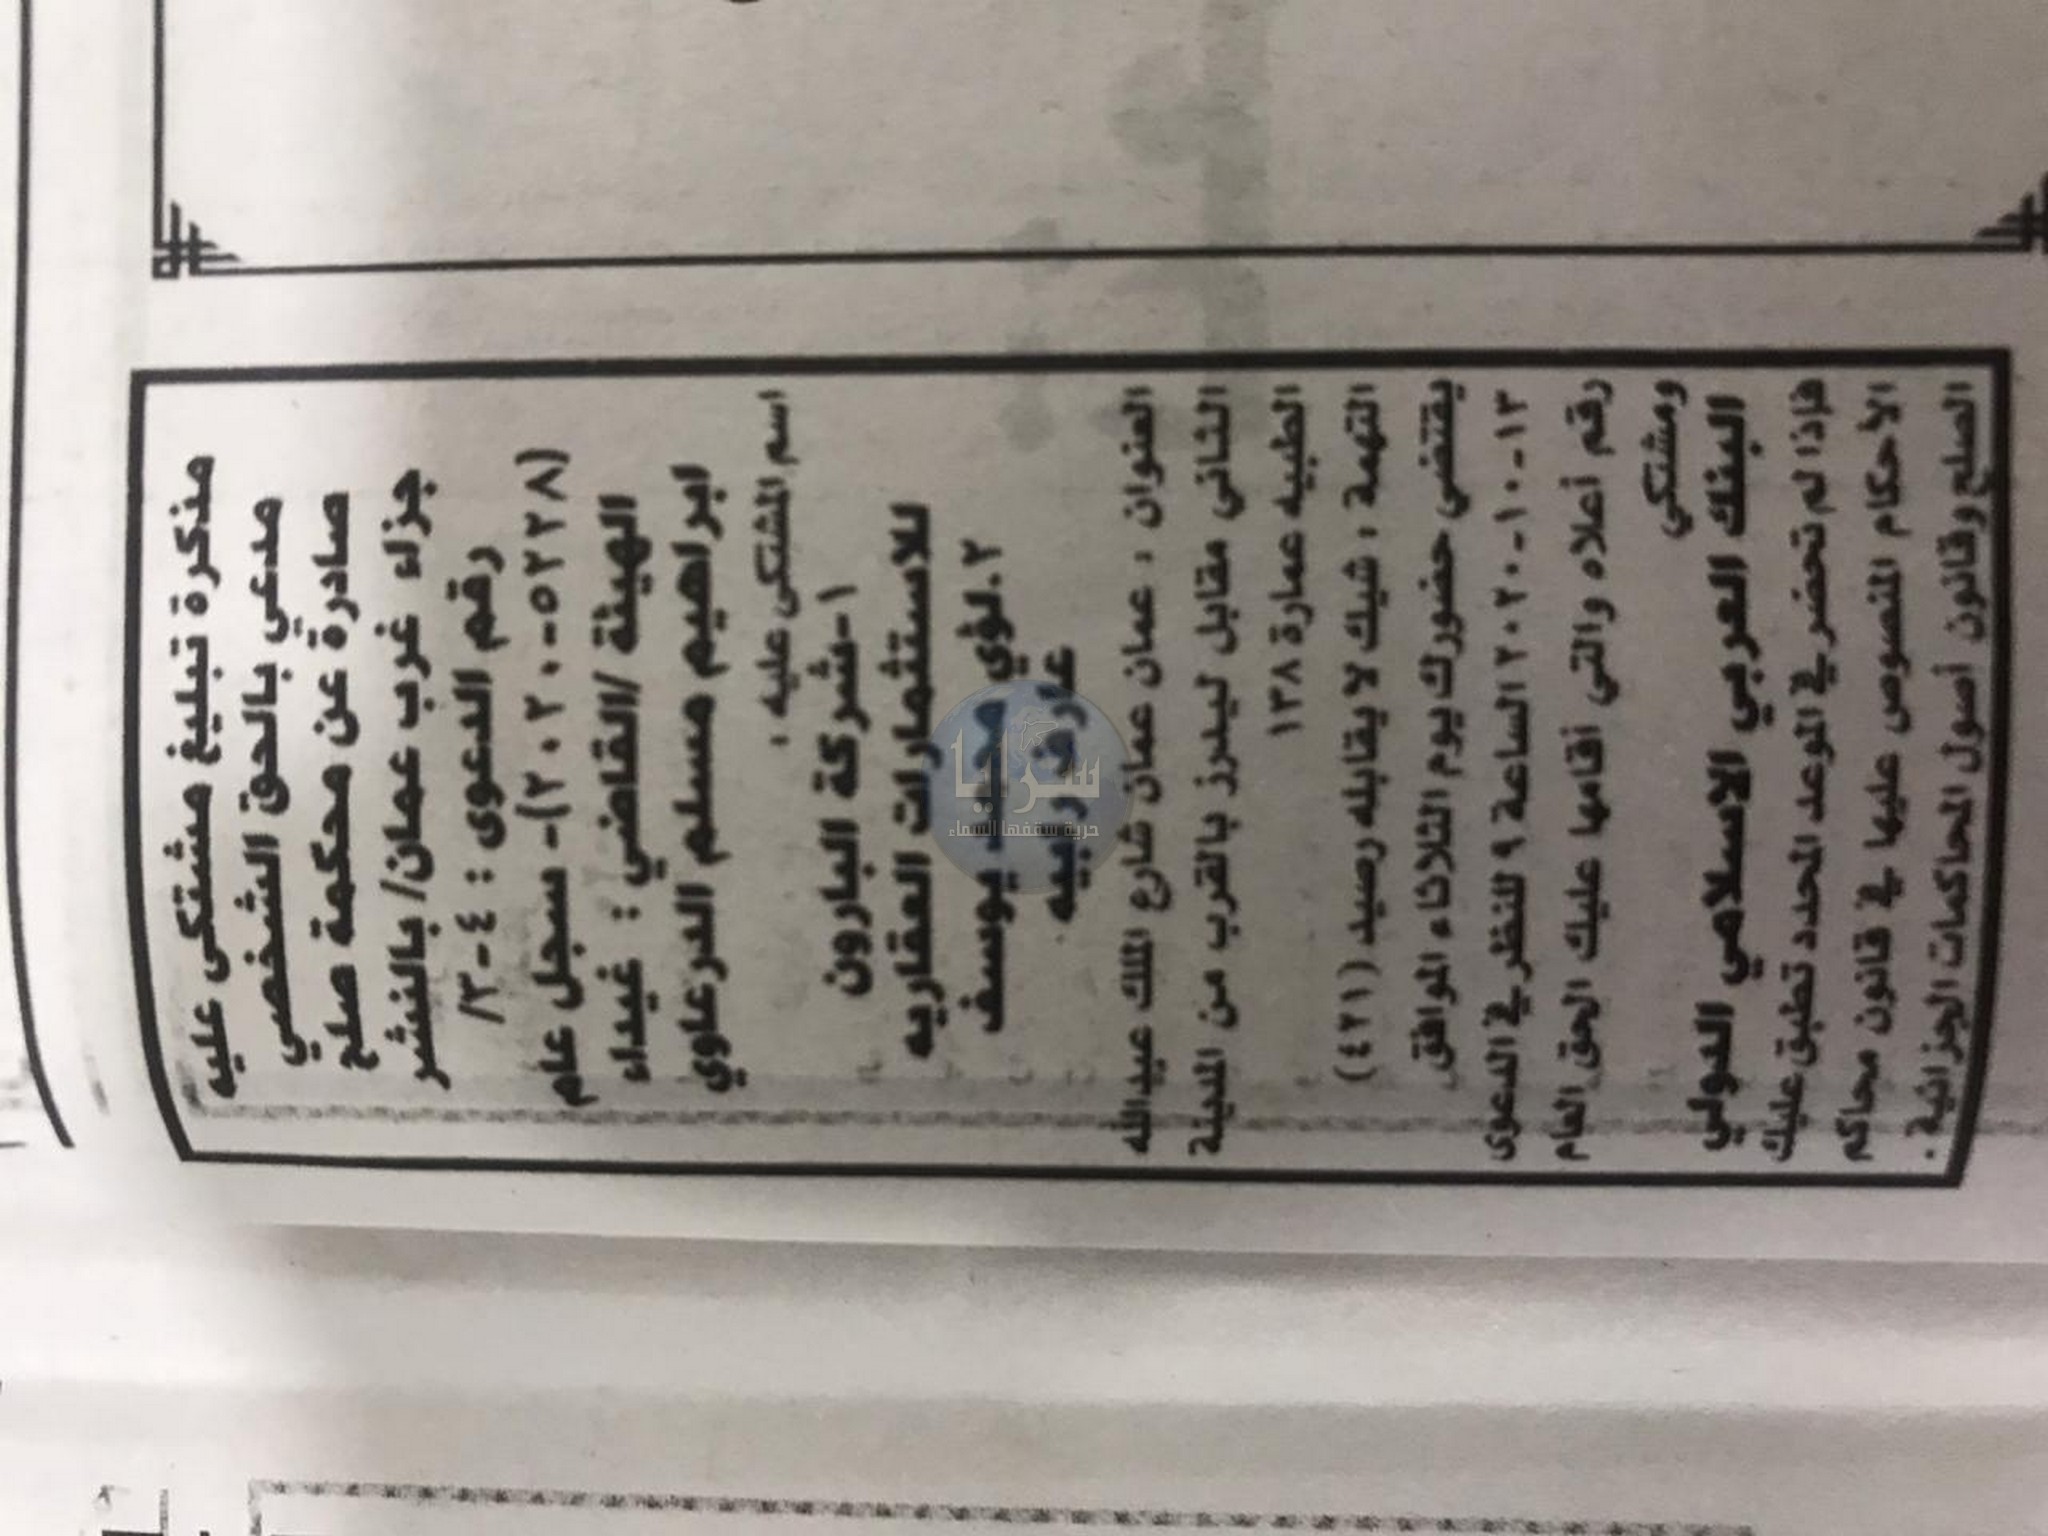 مذكرة تبليغ مشتكى عليه
مدعي بالحق الشخصي
صادرة عن محكمة صلح
جزاء غرب عمان/ بالنشر
رقم الدعوى : ٤-٣/
(٥٢٢٨-٢٠٢٠)- سجل عام
الهيئة /القاضي : غيداء
ابراهيم مسلم الدرعاوي
اسم المشتكى عليه :
١-شركة البارون
للاستثمارات العقاريه
٢.لؤي محمد يوسف
عارف ربيبه
العنوان : عمان عمان شارع الملك عبدالله
الثاني مقابل ليدرز بالقرب من المدينة
الطبيه عمارة ١٣٨
التهمة : شيك لا يقابله رصيد (٤٢١)
يقتضي حضورك يوم الثلاثاء الموافق
١٣-١٠-٢٠٢٠ الساعة ٩ للنظر في الدعوى
رقم أعلاه والتي أقامها عليك الحق العام
ومشتكي
البنك العربي الاسلامي الدولي
فإذا لم تحضر في الموعد المحدد تطبق عليك
الأحكام المنصوص عليها في قانون محاكم
الصلح وقانون أصول المحاكمات الجزائية .
سرايا
حرية سقفها السماء